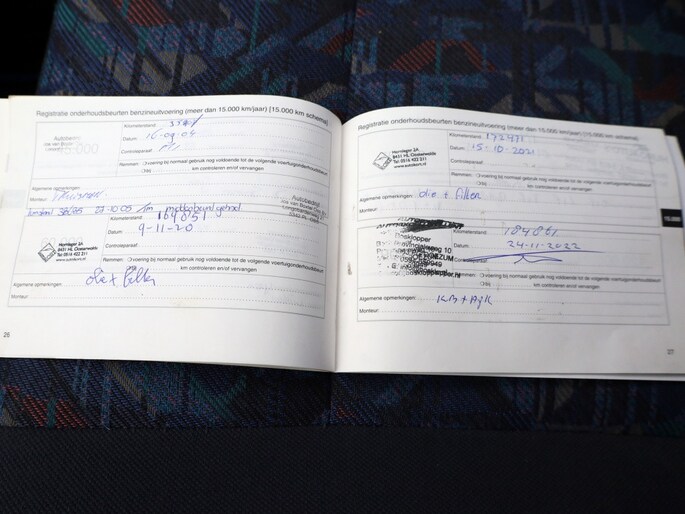 Registratie onderhoudsbeurten benzineuitvoering (meer dan 15.000 km/jaar) [15.000 km schema]
Kilometerstand
Datum 16-09-04
Controleparaaf
Remmen: voering bij normaal gebruik nog voldoende tot de volgende voertuigonderhoudsbeurt
bij km controleren en/of vervangen
Algemene opmerkingen:
Monteur:
Kilometerstand 164851
Datum 9-11-20
Controleparaaf
Hornleger 2A
8431 HL Oosterwolde
Tel: 0516 422 311
Remmen: voering bij normaal gebruik nog voldoende tot de volgende voertuigonderhoudsbeurt
bij km controleren en/of vervangen
Algemene opmerkingen: olie + filter
Monteur:
26
Registratie onderhoudsbeurten benzineuitvoering (meer dan 15.000 km/jaar) [15.000 km schema]
Kilometerstand 172471
Datum 15-10-2021
Hornleger 2A
8431 HL Oosterwolde
Tel: 0516 422 311
Controleparaaf
Remmen: voering bij normaal gebruik nog voldoende tot de volgende voertuigonderhoudsbeurt
bij km controleren en/of vervangen
Algemene opmerkingen: olie + filter
Monteur:
15.000
Kilometerstand 184861
Datum 24-11-2022
Controleparaaf
Remmen: voering bij normaal gebruik nog voldoende tot de volgende voertuigonderhoudsbeurt
bij km controleren en/of vervangen
Algemene opmerkingen:
Monteur:
27